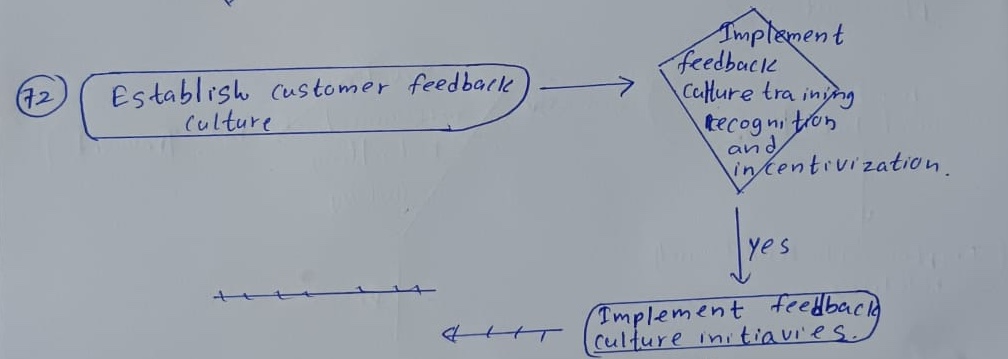 72 Establish customer feedback
culture
Implement
feedback
culture training
recognition
and
incentivization.
yes
Implement feedback
culture initiavies.